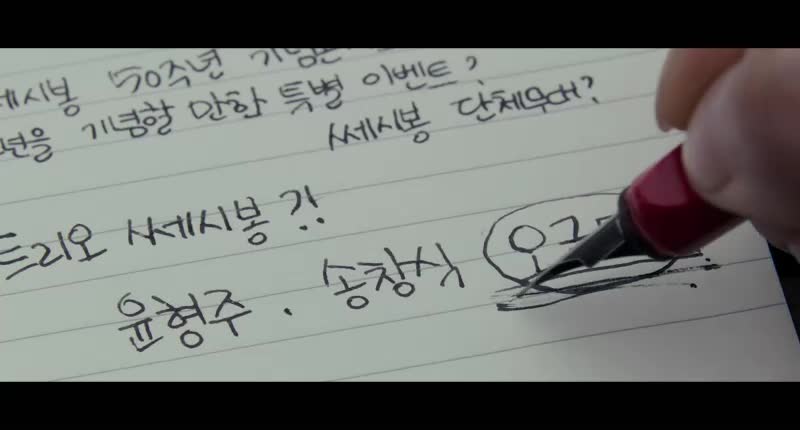 쎄시봉 50주년
년을 기념할 만한 특별 이벤트?
쎄시봉 단체무대?
트리오 쎄시봉?!
윤형주 · 송창식